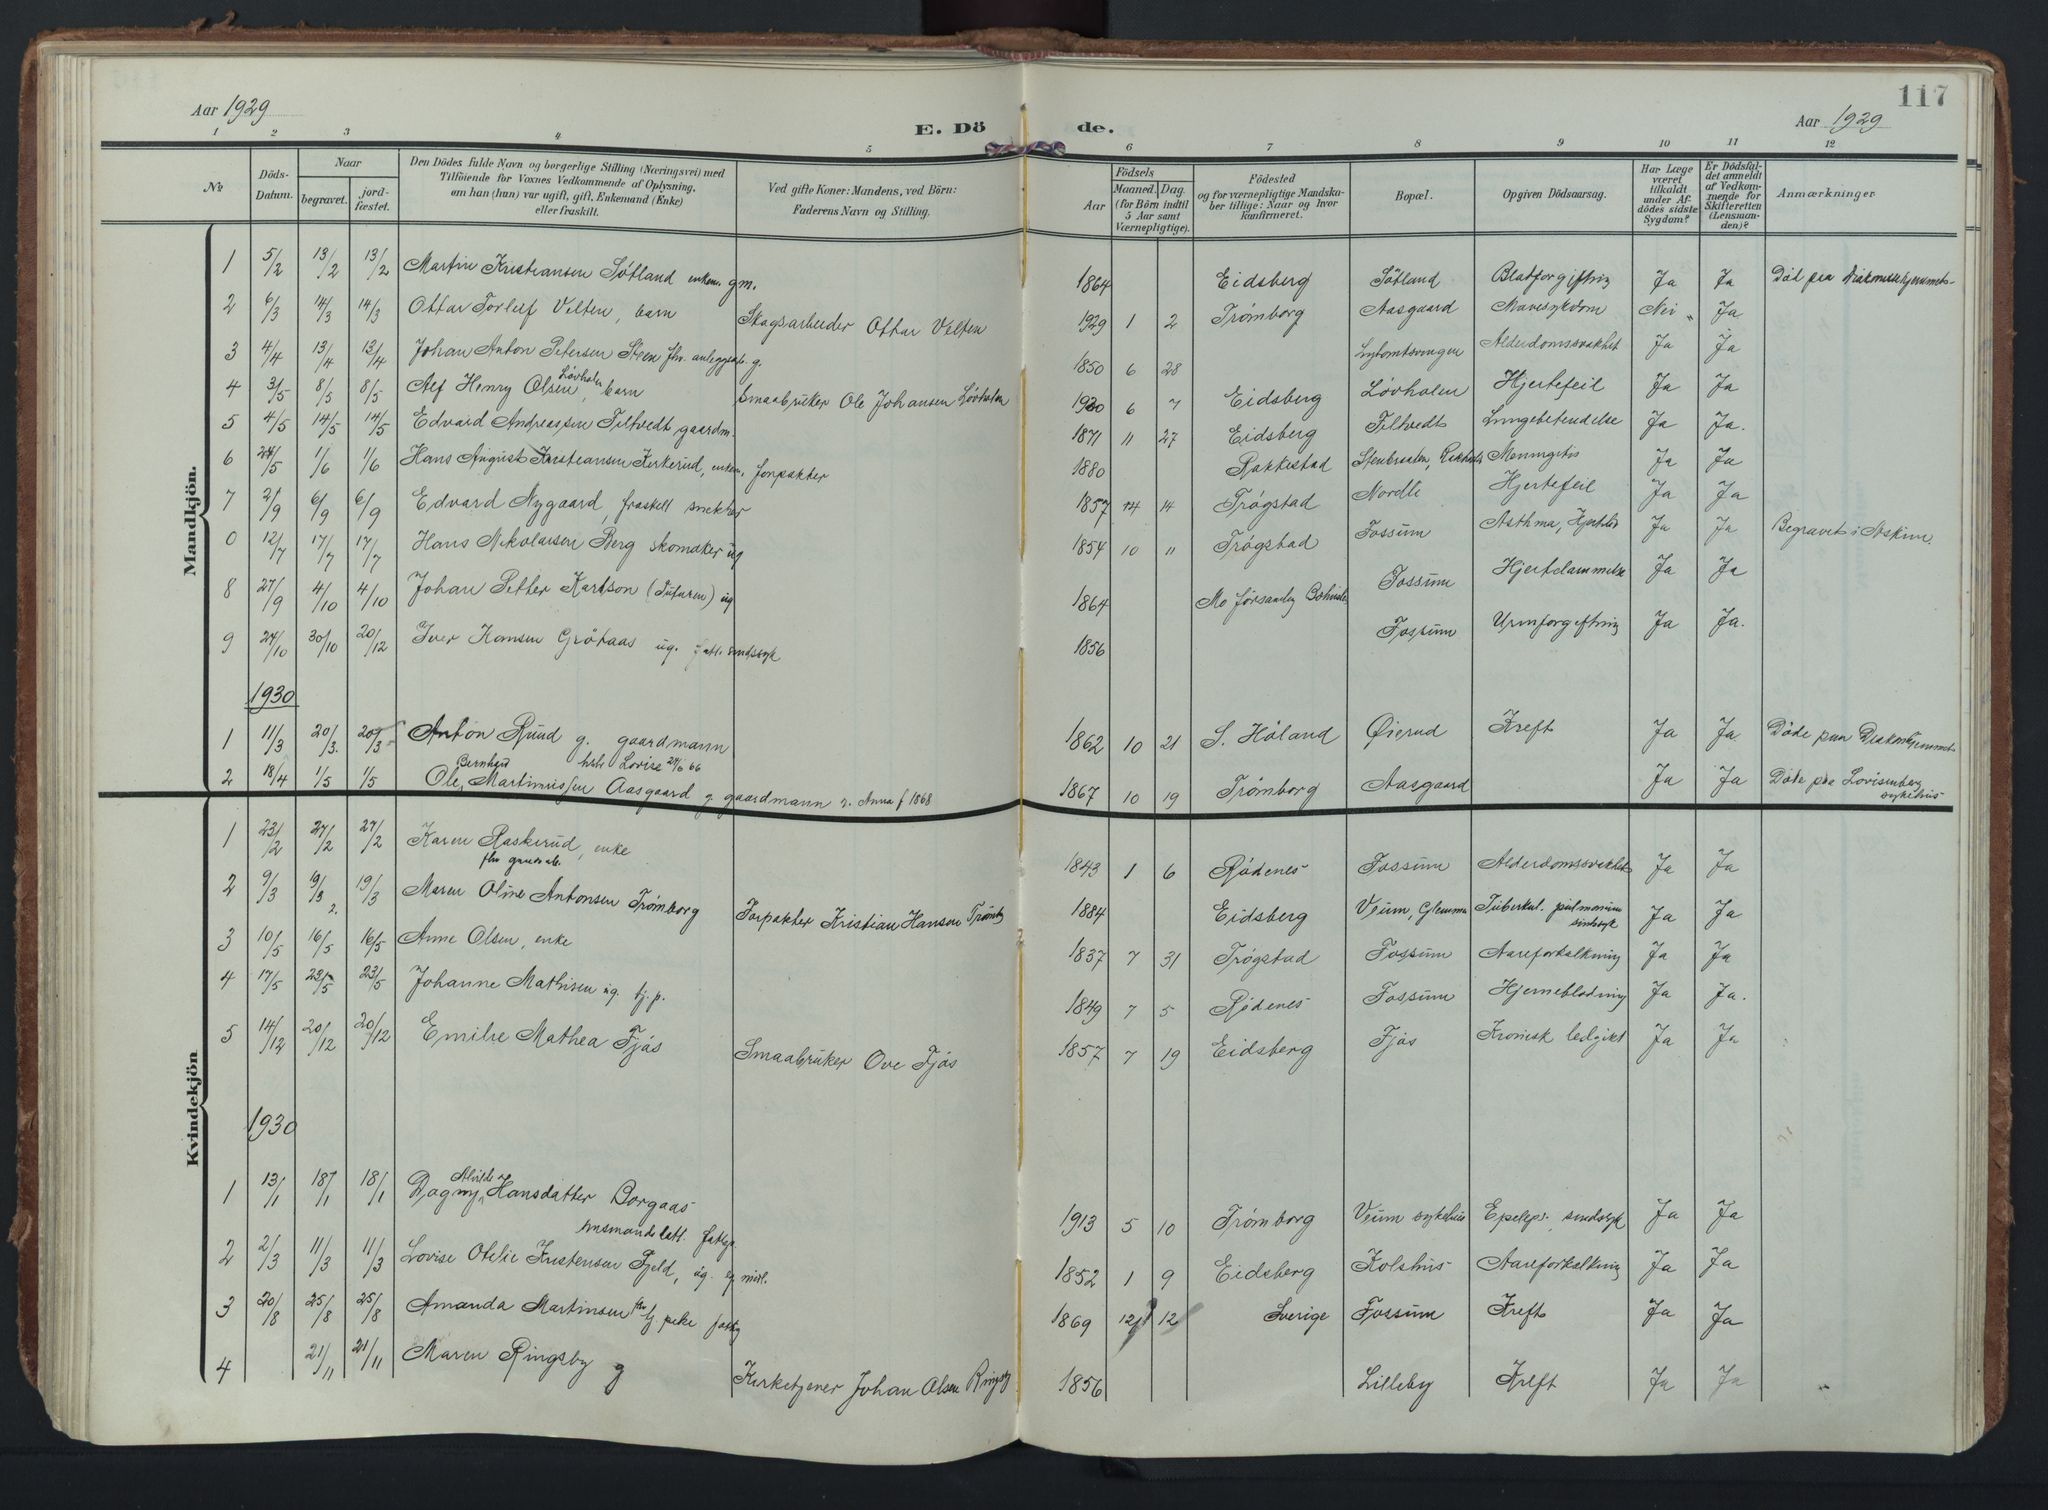 117
Aar 1929
E. Dö de.
Aar 1929
1 2 3 4 5 6 7 8 9 10 11 12
№
Döds-Datum.
Naar
begravet.
jord-fæstet.
Den Dödes fulde Navn og borgerlige Stilling (Næringsvei) med
Tilföiende for Voxnes Vedkommende af Oplysning,
om han (hun) var ugift, gift, Enkemand (Enke)
eller fraskilt.
Ved gifte Koner: Mandens, ved Börn:
Faderens Navn og Stilling.
Födsels
Aar
Maaned. Dag.
(for Börn indtil
5 Aar samt
Værnepligtige).
Födested
og for værnepligtige Mandska-
ber tillige: Naar og hvor
konfirmeret.
Bopæl.
Opgiven Dödsaarsag.
Har Læge
været
tilkaldt
under Af-
dödes sidste
Sygdom?
Er Dödsfal-
det anmeldt
af Vedkom-
mende for
Skifteretten
(Lensman-
den)?
Anmærkninger
Mandkjön.
1 5/2 13/2 13/2 Martin Kristiansen Sötland enkem. gm. 1864 Eidsberg Sötland Blodforgiftning Ja Ja Död paa Diakonissehjemmets
2 6/3 14/3 14/3 Ottar Torleif Velten, barn Skogsarbeider Ottar Velten 1929 1 2 Trömborg Aasgaard Mavesykdom Nei Ja
3 4/4 13/4 13/4 Johan Anton Petersen Steen fhv. anleggsarb. g. 1850 6 28 Alderdomssvakhet Ja Ja
4 3/5 8/5 8/5 Alf Henry Olsen Lövholen, barn Smaabruker Ole Johansen Lövholen 1920 6 7 Eidsberg Lövholen Hjertefeil Ja Ja
5 4/5 14/5 14/5 Edvard Andreassen Tiltvedt gaardm. 1871 11 27 Eidsberg Tiltvedt Lungebetendelse Ja Ja.
6 24/5 1/6 1/6 Hans August Kristiansen Kirkerud, enkem. forpakter 1880 Rakkestad Meningitis Ja Ja
7 2/9 6/9 6/9 Edvard Nygaard, fraskilt snekker 1857 14 Trögstad Nordli Hjertefeil Ja Ja
0 12/7 17/7 17/7 Hans Nikolaisen Berg skomaker ug 1854 10 11 Trögstad Fossum Asthma, Ja Ja Begravet i Askim.
8 27/9 4/10 4/10 Johan Petter Karlson ug 1864 Mo Fossum Hjertelammelse Ja Ja
9 24/10 30/10 20/12 Iver Hansen Grötaas ug. fatt. sindssyk 1856 Fossum Urinforgiftning Ja Ja.
1930
1 11/3 20/3. 20/3 Anton Ruud g. gaardmann 1862 10 21 S. Höland Öierud Kreft Ja Ja Döde paa Diakonhjemmet
hstr Lovise 24/6 66
2 18/4 1/5 1/5 Ole Bernhard Martiniussen Aasgaard g. gaardmann m. Anna f 1868 1867 10 19 Trömborg Aasgaard Ja Ja Döde paa Lovisenberg sykehus
Kvindekjön
1 23/2 27/2 27/2 Karen Raskerud, enke 1843 1 6 Rödenes Fossum Alderdomssvakhet Ja Ja
2 9/3 19/3 19/3 Maren Oline Antonsen Trömborg Forpakter Kristian Hansen Trömborg 1884 Eidsberg Veum, Glemmen Tuberkul. pulmonum sindssyk Ja Ja
3 10/5 16/5 16/5 Anne Olsen, enke 1837 7 31 Trögstad Fossum Aareforkalkning Ja Ja
4 17/5 23/5 23/5 Johanne Mathisen ug. tj. p. 1849 7 5 Rödenes Fossum Hjerneblödning Ja Ja.
5 14/12 20/12 20/12 Emilie Mathea Fjös Smaabruker Ove Fjös 1857 7 19 Eidsberg Fjös Kronisk ledgikt Ja Ja
1930
1 13/1 18/1 18/1 Dagny Alvilde Hansdatter Borgaas 1913 5 10 Trömborg Veum sykehus Epilepsi, sindssyk Ja Ja
2 2/3 11/3 11/3 Lovise Otelie Kristensen Fjeld, ug. 1852 1 9 Eidsberg Kolshus Aareforkalkning Ja Ja
3 20/8 25/8 25/8 Amanda Martinsen fhv tj pike 1869 12 12 Sverige Fossum Kreft Ja Ja
4 21/11 21/11 Maren Ringsby g Kirketjener Johan Olsen Ringsby 1856 Lilleby Kreft Ja Ja